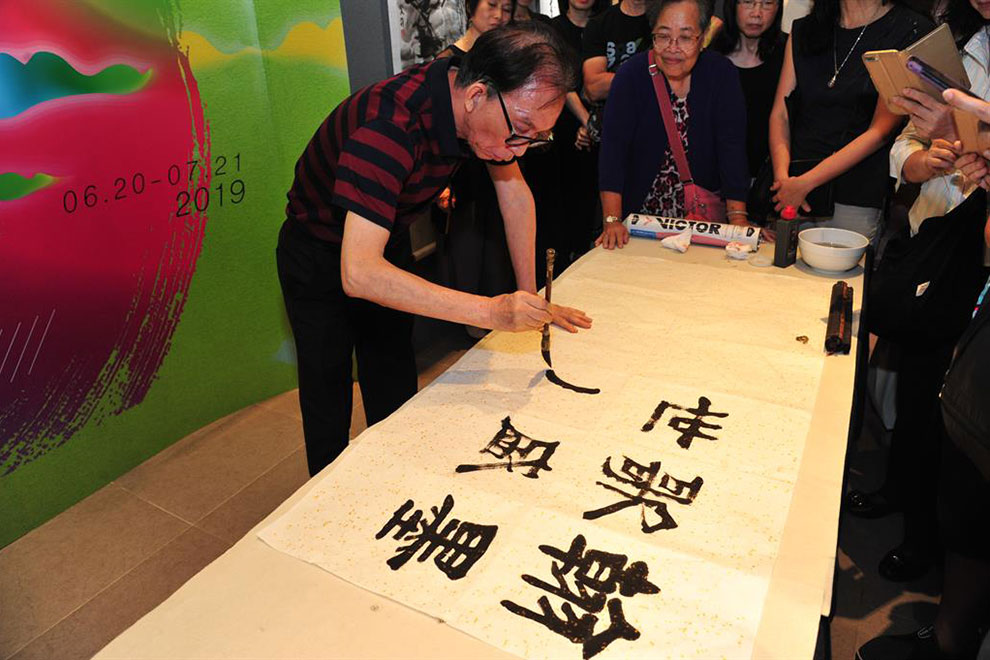 06.20-07.21
2019
VICTOR
翰墨
盛
世